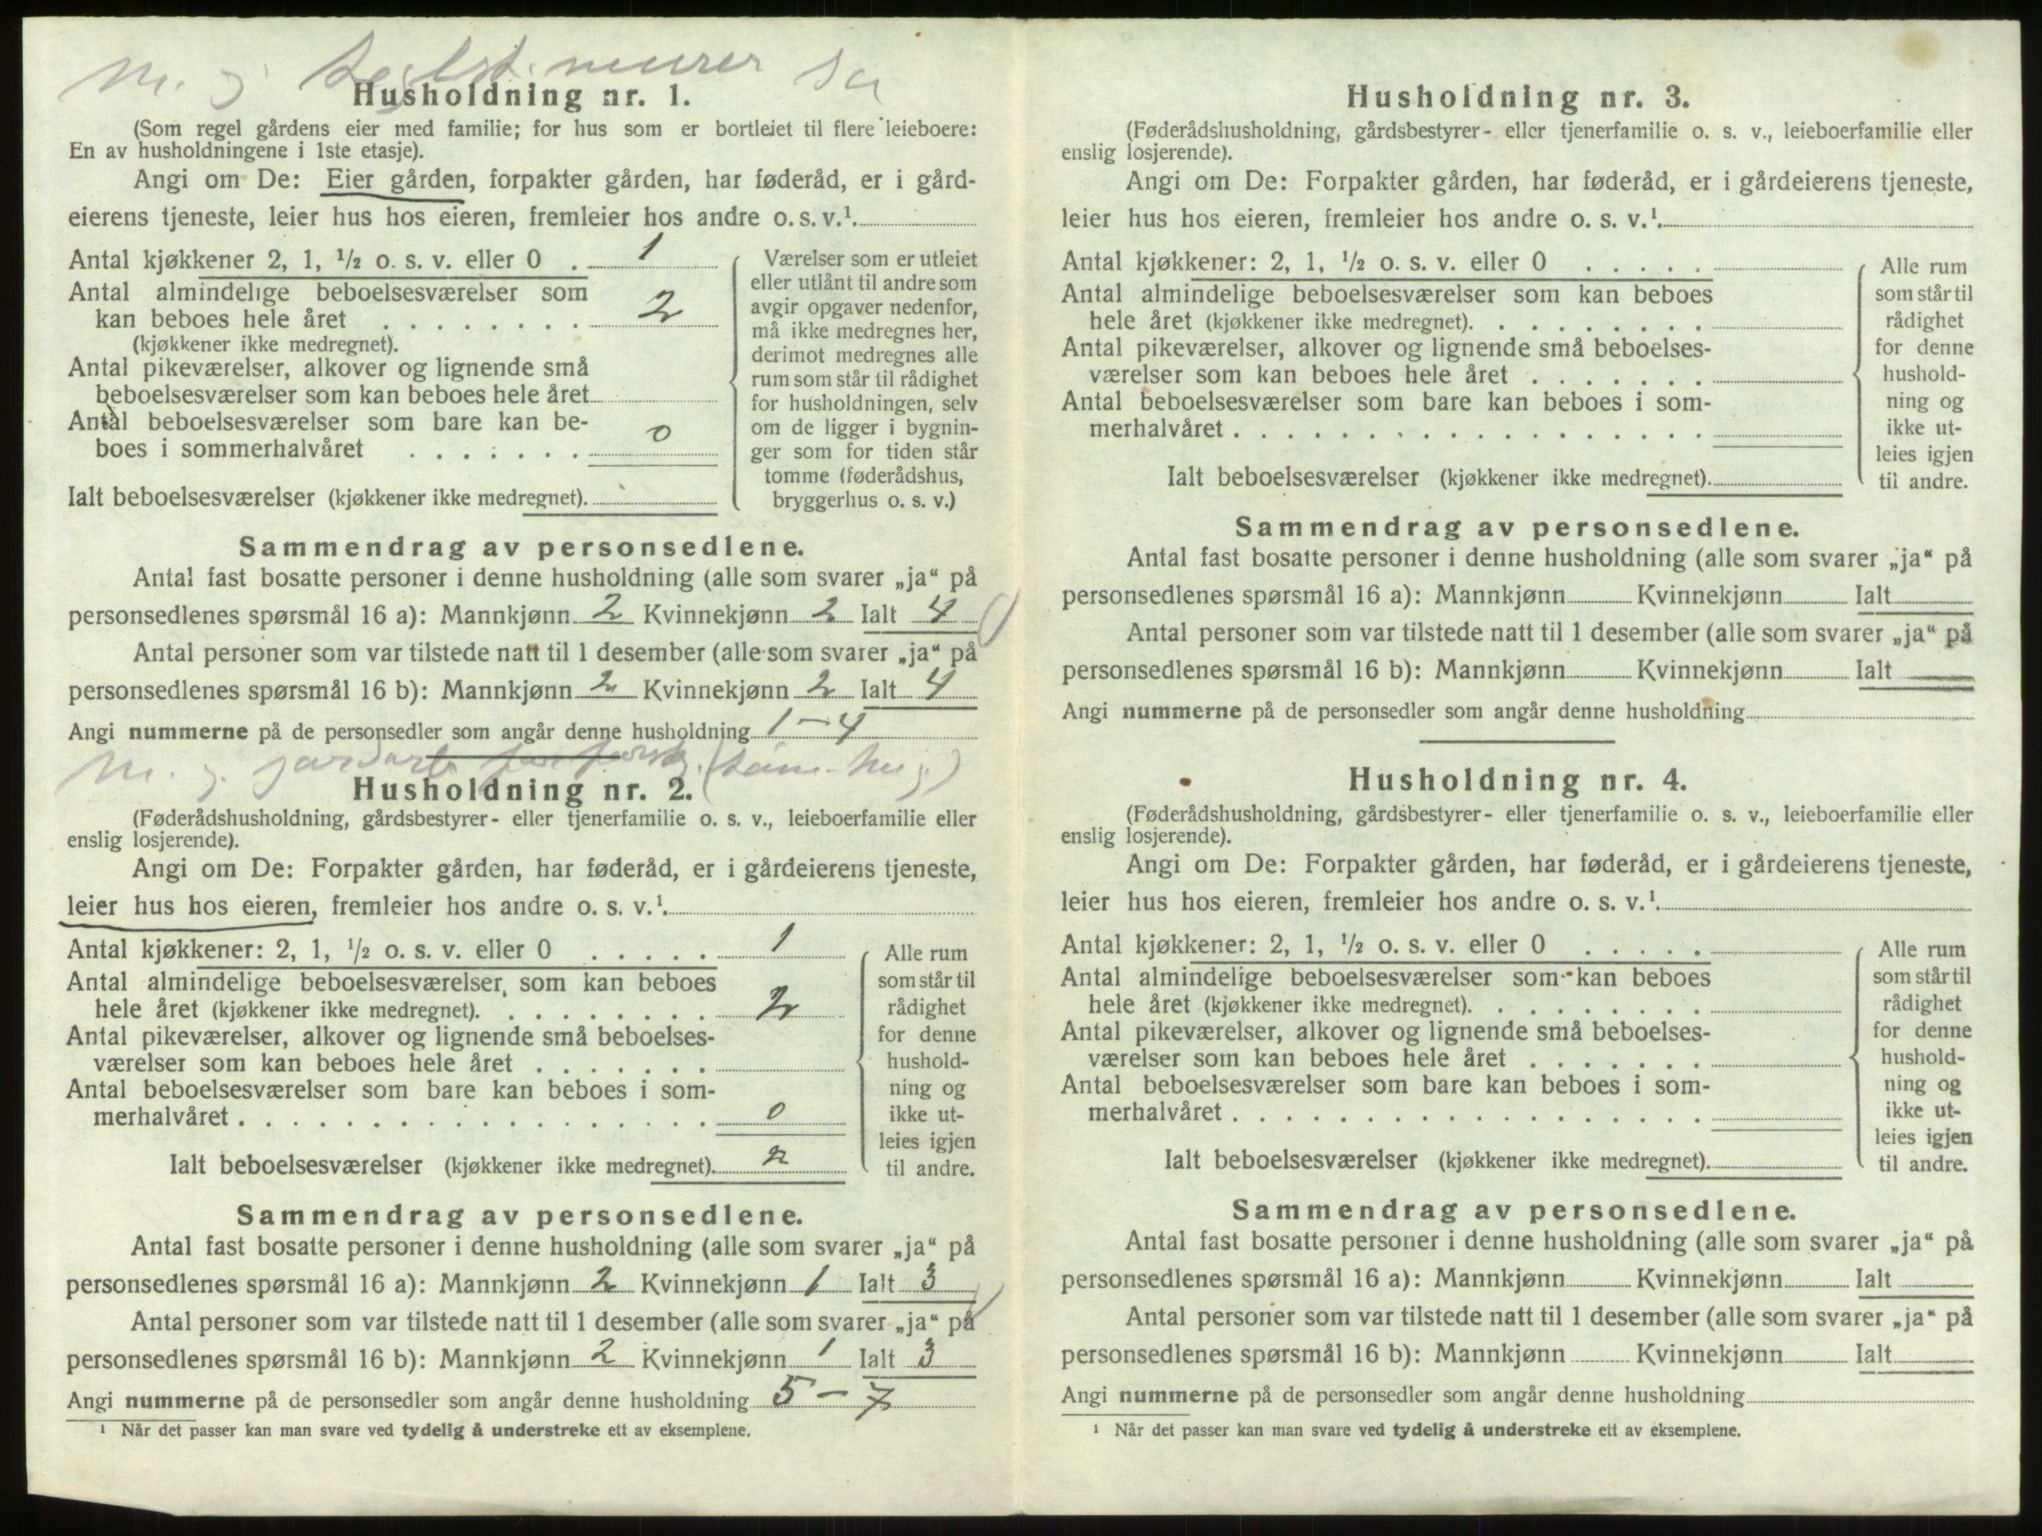 M. g. murer su
Husholdning nr. 1.
(Som regel gårdens eier med familie; for hus som er bortleiet til flere leieboere:
En av husholdningene i 1ste etasje).
Angi om De: Eier gården, forpakter gården, har føderåd, er i gård-
eierens tjeneste, leier hus hos eieren, fremleier hos andre o. s. v.¹.
Antal kjøkkener 2, 1, ½ o. s. v. eller 0 . 1
Antal almindelige beboelsesværelser som
kan beboes hele året . . . . . . . . 2
(kjøkkener ikke medregnet).
Antal pikeværelser, alkover og lignende små
beboelsesværelser som kan beboes hele året
Antal beboelsesværelser som bare kan be-
boes i sommerhalvåret . . . . . . . 0
Ialt beboelsesværelser (kjøkkener ikke medregnet).
Værelser som er utleiet
eller utlånt til andre som
avgir opgaver nedenfor,
må ikke medregnes her,
derimot medregnes alle
rum som står til rådighet
for husholdningen, selv
om de ligger i bygnin-
ger som for tiden står
tomme (føderådshus,
bryggerhus o. s. v.)
Sammendrag av personsedlene.
Antal fast bosatte personer i denne husholdning (alle som svarer „ja“ på
personsedlenes spørsmål 16 a): Mannkjønn 2 Kvinnekjønn 2 Ialt 4
Antal personer som var tilstede natt til 1 desember (alle som svarer „ja“ på
personsedlenes spørsmål 16 b): Mannkjønn 2 Kvinnekjønn 2 Ialt 4
Angi nummerne på de personsedler som angår denne husholdning 1–4
M. g.
Husholdning nr. 2.
(Føderådshusholdning, gårdsbestyrer- eller tjenerfamilie o. s. v., leieboerfamilie eller
enslig losjerende).
Angi om De: Forpakter gården, har føderåd, er i gårdeierens tjeneste,
leier hus hos eieren, fremleier hos andre o. s. v.¹.
Antal kjøkkener: 2, 1, ½ o. s. v. eller 0 . . . . . 1
Antal almindelige beboelsesværelser, som kan beboes
hele året (kjøkkener ikke medregnet). . . . . . . . . 2
Antal pikeværelser, alkover og lignende små beboelses-
værelser som kan beboes hele året . . . . . . .
Antal beboelsesværelser som bare kan beboes i som-
merhalvåret . . . . . . . . . . . . . . . . . . 0
Ialt beboelsesværelser (kjøkkener ikke medregnet). 2
Alle rum
som står til
rådighet
for denne
hushold-
ning og
ikke ut-
leies igjen
til andre.
Sammendrag av personsedlene.
Antal fast bosatte personer i denne husholdning (alle som svarer „ja“ på
personsedlenes spørsmål 16 a): Mannkjønn 2 Kvinnekjønn 1 Ialt 3
Antal personer som var tilstede natt til 1 desember (alle som svarer „ja“ på
personsedlenes spørsmål 16 b): Mannkjønn 2 Kvinnekjønn 1 Ialt 3
Angi nummerne på de personsedler som angår denne husholdning 5–7
¹ Når det passer kan man svare ved tydelig å understreke ett av eksemplene.
Husholdning nr. 3.
(Føderådshusholdning, gårdsbestyrer- eller tjenerfamilie o. s. v., leieboerfamilie eller
enslig losjerende).
Angi om De: Forpakter gården, har føderåd, er i gårdeierens tjeneste,
leier hus hos eieren, fremleier hos andre o. s. v.¹.
Antal kjøkkener: 2, 1, ½ o. s. v. eller 0 . . . . .
Antal almindelige beboelsesværelser som kan beboes
hele året (kjøkkener ikke medregnet). . . . . . . . .
Antal pikeværelser, alkover og lignende små beboelses-
værelser som kan beboes hele året . . . . . . .
Antal beboelsesværelser som bare kan beboes i som-
merhalvåret . . . . . . . . . . . . . . . . . .
Ialt beboelsesværelser (kjøkkener ikke medregnet).
Alle rum
som står til
rådighet
for denne
hushold-
ning og
ikke ut-
leies igjen
til andre.
Sammendrag av personsedlene.
Antal fast bosatte personer i denne husholdning (alle som svarer „ja“ på
personsedlenes spørsmål 16 a): Mannkjønn Kvinnekjønn Ialt
Antal personer som var tilstede natt til 1 desember (alle som svarer „ja“ på
personsedlenes spørsmål 16 b): Mannkjønn Kvinnekjønn Ialt
Angi nummerne på de personsedler som angår denne husholdning
Husholdning nr. 4.
(Føderådshusholdning, gårdsbestyrer- eller tjenerfamilie o. s. v., leieboerfamilie eller
enslig losjerende).
Angi om De: Forpakter gården, har føderåd, er i gårdeierens tjeneste,
leier hus hos eieren, fremleier hos andre o. s. v.¹.
Antal kjøkkener: 2, 1, ½ o. s. v. eller 0 . . . . .
Antal almindelige beboelsesværelser som kan beboes
hele året (kjøkkener ikke medregnet). . . . . . . . .
Antal pikeværelser, alkover og lignende små beboelses-
værelser som kan beboes hele året . . . . . . .
Antal beboelsesværelser som bare kan beboes i som-
merhalvåret . . . . . . . . . . . . . . . . . .
Ialt beboelsesværelser (kjøkkener ikke medregnet).
Alle rum
som står til
rådighet
for denne
hushold-
ning og
ikke ut-
leies igjen
til andre.
Sammendrag av personsedlene.
Antal fast bosatte personer i denne husholdning (alle som svarer „ja“ på
personsedlenes spørsmål 16 a): Mannkjønn Kvinnekjønn Ialt
Antal personer som var tilstede natt til 1 desember (alle som svarer „ja“ på
personsedlenes spørsmål 16 b): Mannkjønn Kvinnekjønn Ialt
Angi nummerne på de personsedler som angår denne husholdning
¹ Når det passer kan man svare ved tydelig å understreke ett av eksemplene.